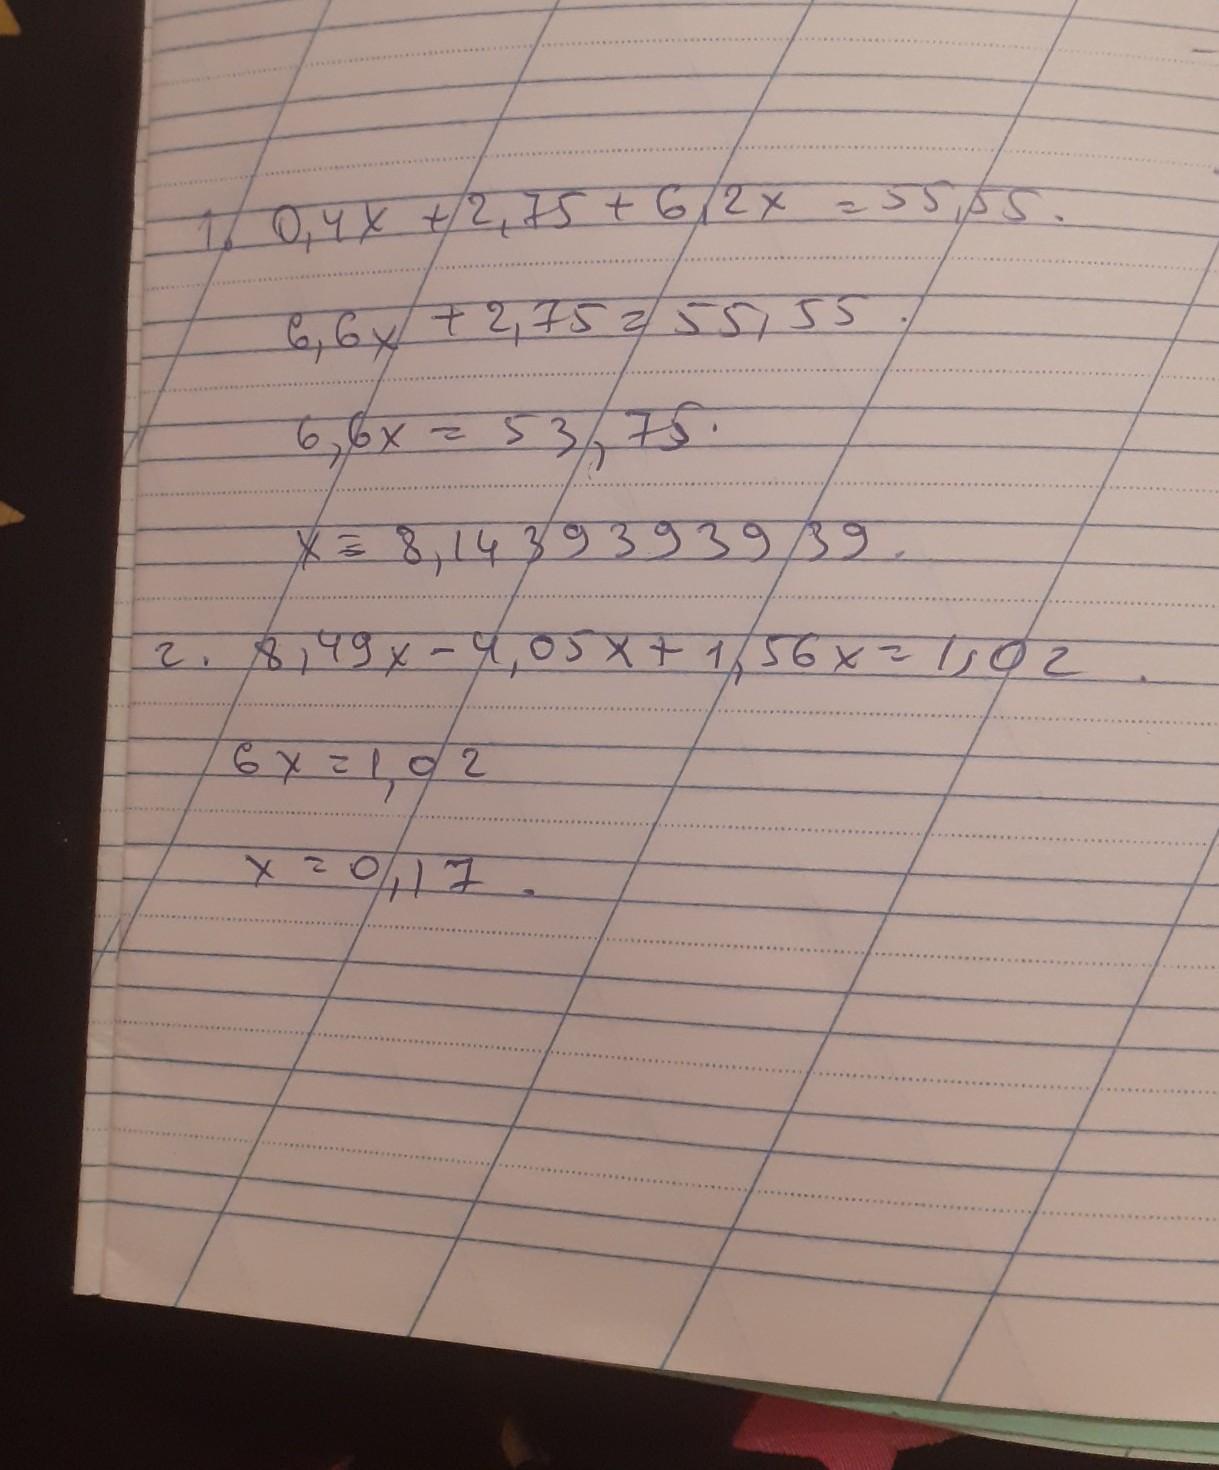 1. 0,4x + 2,75 + 6,2x = 55,55.
6,6x + 2,75 = 55,55.
6,6x = 53,75.
x = 8,1439393939.
2. 8,49x - 4,05x + 1,56x = 1,02.
6x = 1,02
x = 0,17.